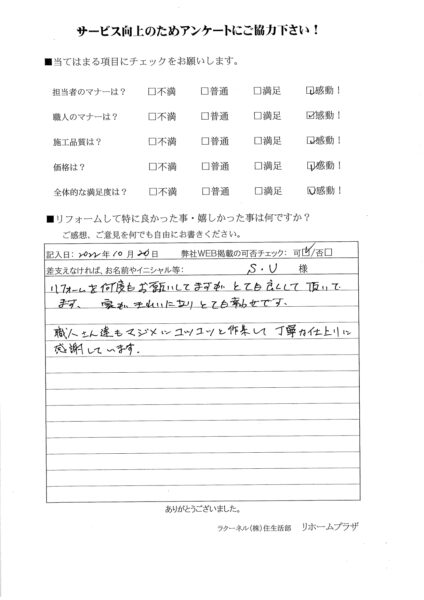 サービス向上のためアンケートにご協力下さい！
■当てはまる項目にチェックをお願いします。
担当者のマナーは？ □不満 □普通 □満足 ☑感動！
職人のマナーは？ □不満 □普通 □満足 ☑感動！
施工品質は？ □不満 □普通 □満足 ☑感動！
価格は？ □不満 □普通 □満足 ☑感動！
全体的な満足度は？ □不満 □普通 □満足 ☑感動！
■リフォームして特に良かった事・嬉しかった事は何ですか？
ご感想、ご意見を何でも自由にお書きください。
記入日：2022年10月20日 弊社WEB掲載の可否チェック： 可☑/否□
差支えなければ、お名前やイニシャル等： S・U 様
リフォームを何度もお願いしてますが とても良くして 頂いて
ます、 家が きれいになり とても幸せです。
職人さん達もマジメに コツコツと作業して 丁寧な仕上りに
感謝しています.
ありがとうございました。
ラクーネル（株）住生活部 リホームプラザ